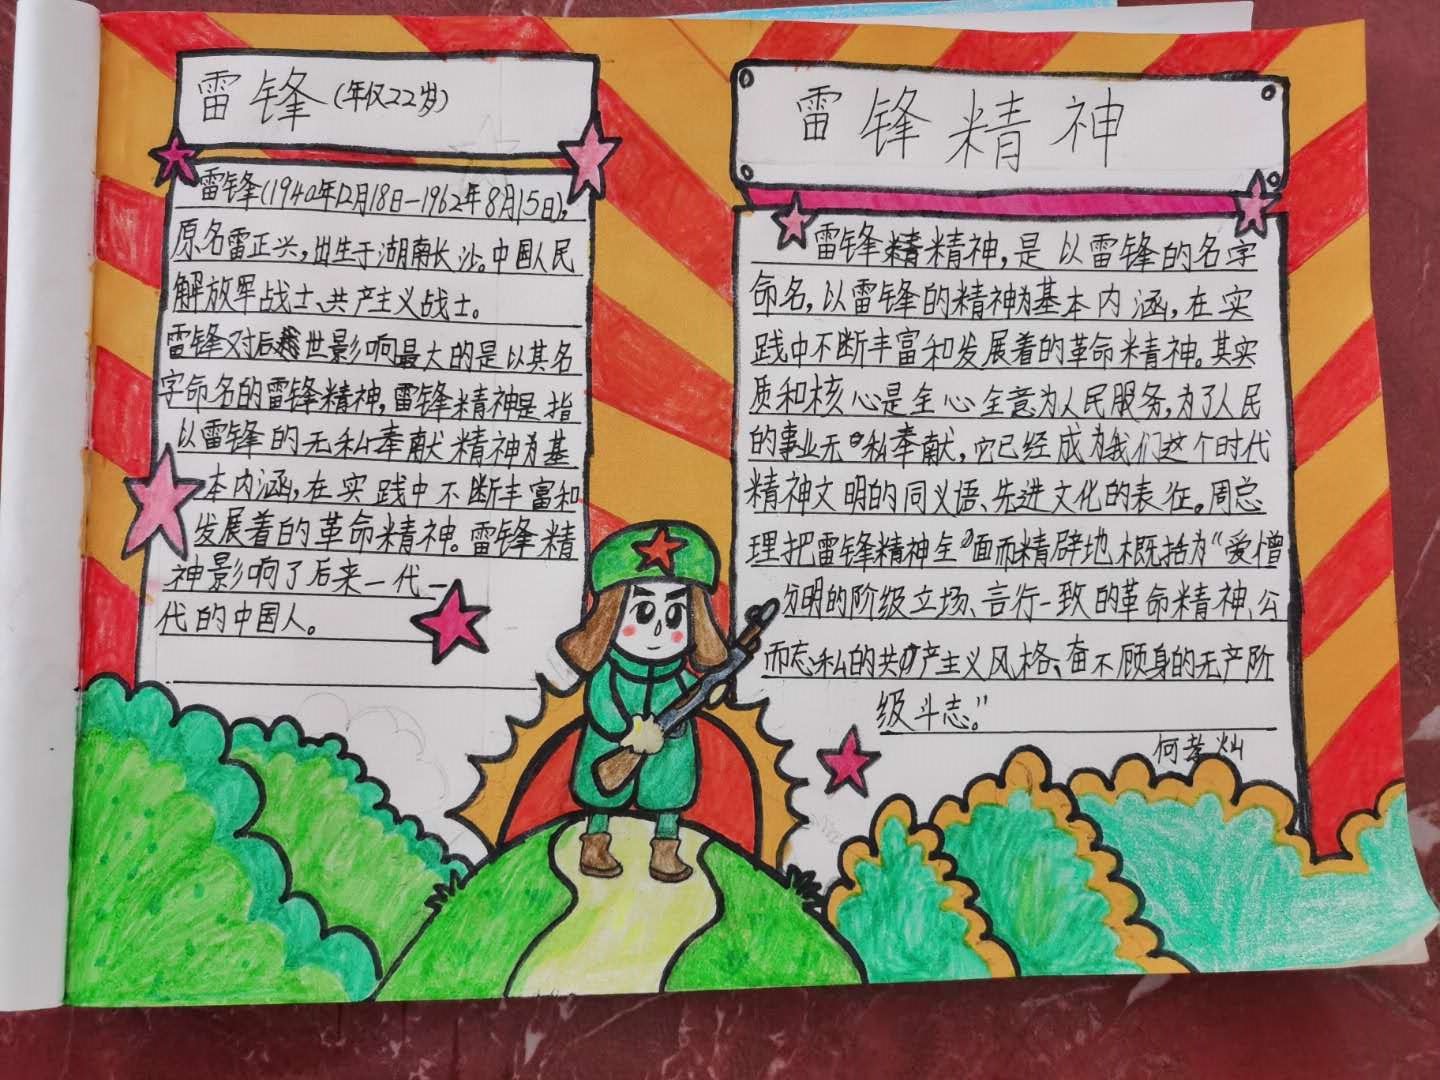 雷锋(年仅22岁)
雷锋(1940年12月18日—1962年8月15日),
原名雷正兴,出生于湖南长沙。中国人民
解放军战士、共产主义战士。
雷锋对后世影响最大的是以其名
字命名的雷锋精神,雷锋精神是指
以雷锋的无私奉献精神为基
本内涵,在实践中不断丰富和
发展着的革命精神。雷锋精
神影响了后来一代一
代的中国人。
雷锋精神
雷锋精神,是以雷锋的名字
命名,以雷锋的精神为基本内涵,在实
践中不断丰富和发展着的革命精神。其实
质和核心是全心全意为人民服务,为了人民
的事业无私奉献,它已经成为我们这个时代
精神文明的同义语、先进文化的表征。周总
理把雷锋精神全面而精辟地概括为“爱憎
分明的阶级立场、言行一致的革命精神、公
而忘私的共产主义风格、奋不顾身的无产阶
级斗志。”
何孝灿